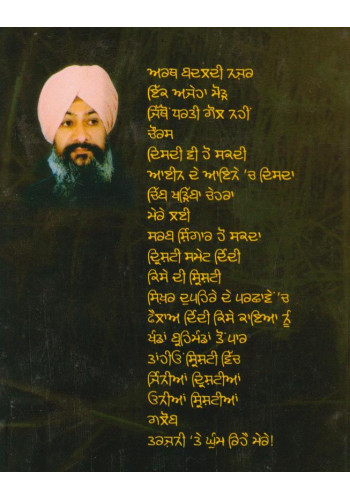 ਅਰਥ ਬਦਲਦੀ ਨਜ਼ਰ
ਇੱਕ ਅਜੇਹਾ ਮੋੜ
ਜਿੱਥੋਂ ਧਰਤੀ ਗੋਲ ਨਹੀਂ
ਚੌਰਸ
ਦਿਸਦੀ ਵੀ ਹੋ ਸਕਦੀ
ਆਈਨ ਦੇ ਆਇਨੇ 'ਚ ਦਿਸਦਾ
ਚਿੱਬ ਖੜਿੱਬਾ ਚੇਹਰਾ
ਮੇਰੇ ਲਈ
ਸਰਬ ਸ਼ਿੰਗਾਰ ਹੋ ਸਕਦਾ
ਦ੍ਰਿਸ਼ਟੀ ਸਮੇਟ ਦਿੰਦੀ
ਕਿਸੇ ਦੀ ਸ੍ਰਿਸ਼ਟੀ
ਸਿਖ਼ਰ ਦੁਪਹਿਰੇ ਦੇ ਪਰਛਾਵੇਂ 'ਚ
ਫੈਲਾਅ ਦਿੰਦੀ ਕਿਸੇ ਕਾਇਆ ਨੂੰ
ਖੰਡਾਂ ਬ੍ਰਹਿਮੰਡਾਂ ਤੋਂ ਪਾਰ
ਤਾਂਹੀਓਂ ਸ੍ਰਿਸ਼ਟੀ ਵਿੱਚ
ਜਿੰਨੀਆਂ ਦ੍ਰਿਸ਼ਟੀਆਂ
ਓਨੀਆਂ ਸ੍ਰਿਸ਼ਟੀਆਂ
ਗਲੋਬ
ਤਰਜਨੀ 'ਤੇ ਘੁੰਮ ਰਿਹੈ ਮੇਰੇ!